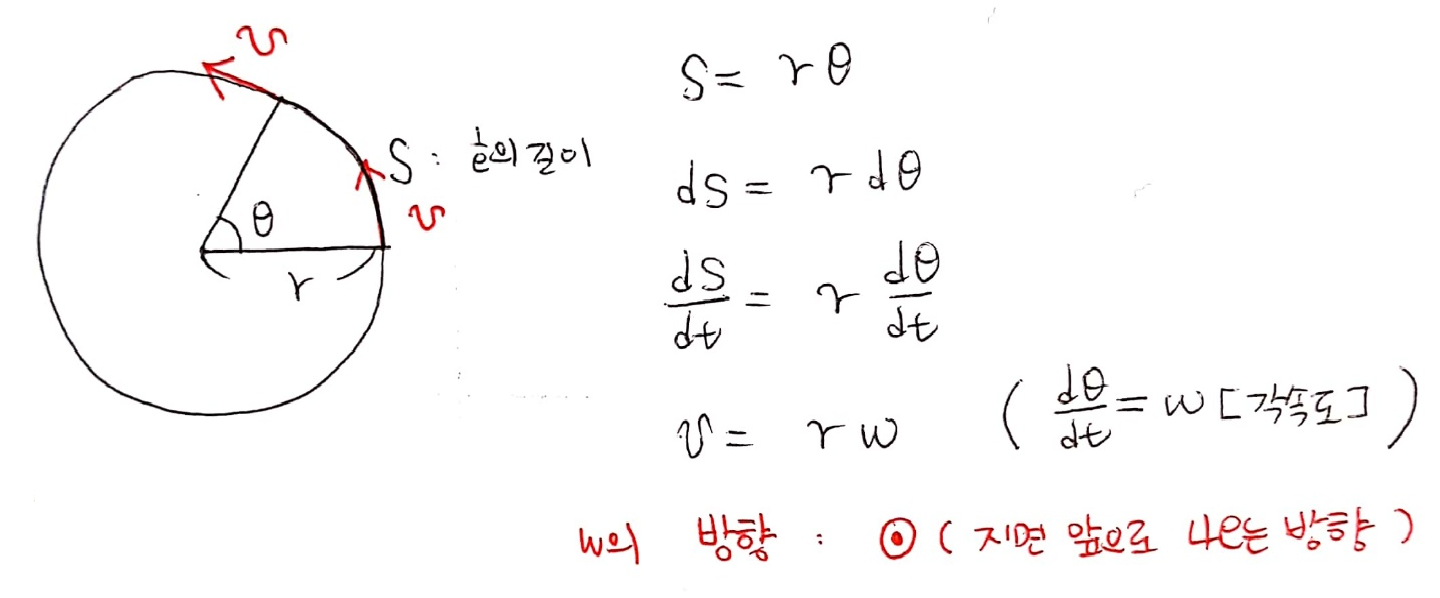 v
S : 호의 길이
θ
v
r
S = rθ
dS = r dθ
dS/dt = r dθ/dt
v = r w ( dθ/dt = w [각속도] )
w의 방향 : ⊙ ( 지면 앞으로 나오는 방향 )